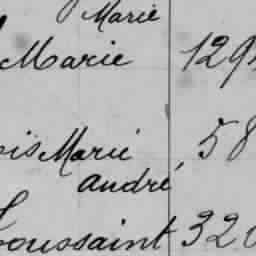 Marie
Marie 129
ois Marie 58
andré
Toussaint 320